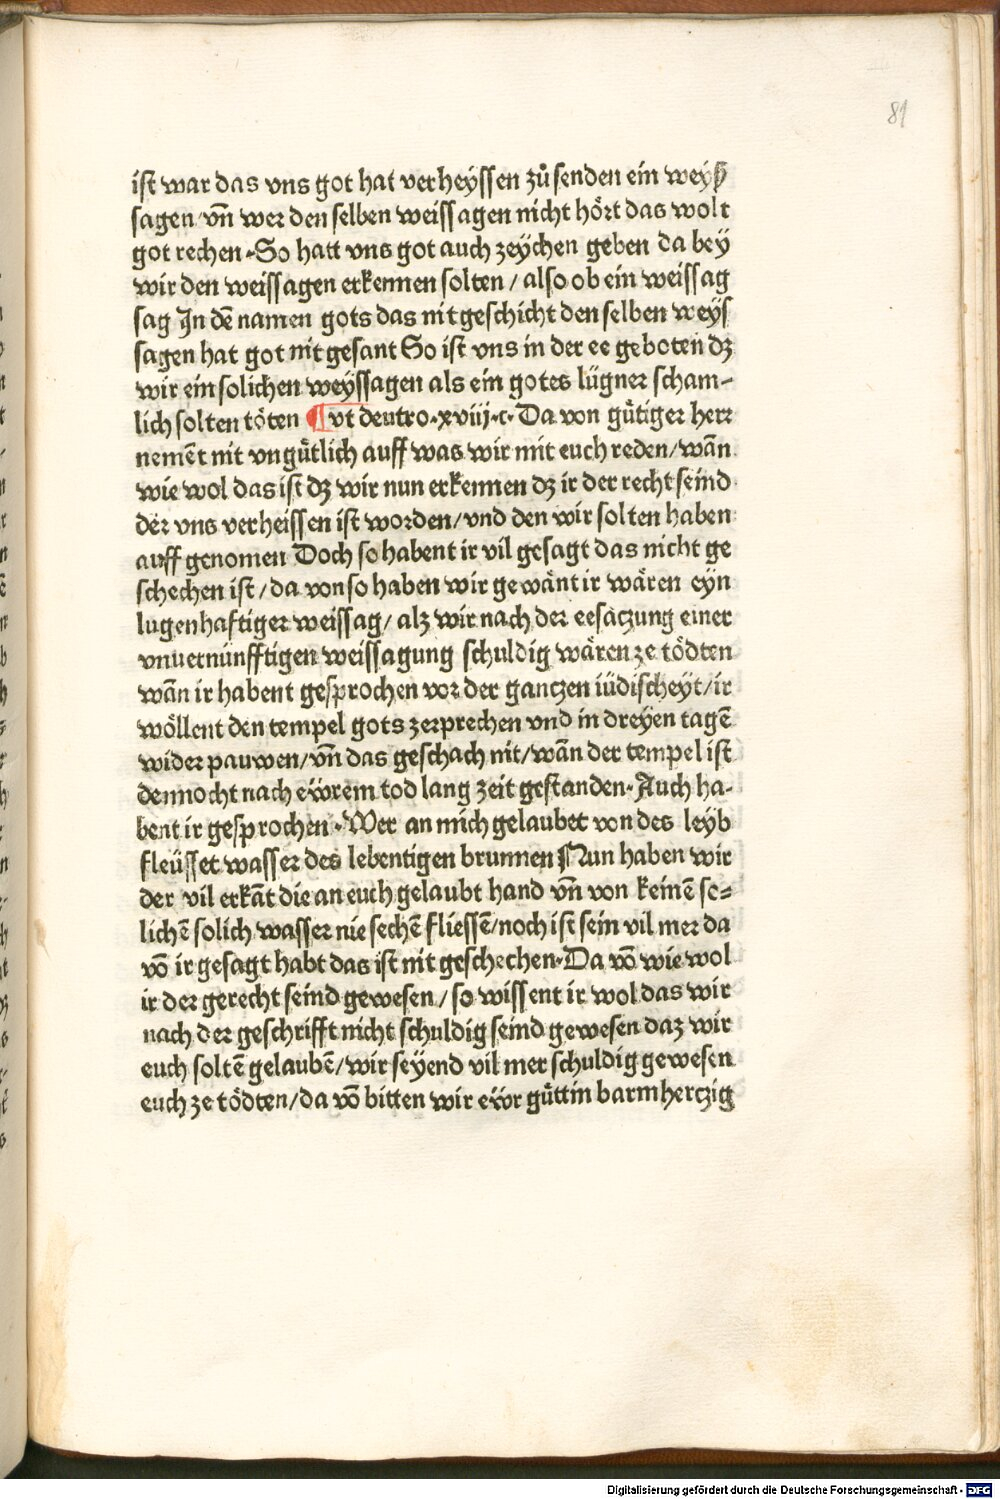 81
ist war das vns got hat verheyssen zů senden ein weyß
sagen vñ wer den selben weissagen nicht hört das wolt
got rechen · So hatt vns got auch zeychen geben da bey
wir den weissagen erkennen solten / also ob ein weissag
sag In dē namen gots das nit geschicht den selben weys
sagen hat got nit gesant So ist vns in der ee geboten dz
wir ein solichen weyssagen als ein gotes lügner scham-
lich solten töten ¶ vt deutro·xviij·c· Da von gütiger herr
nemēt nit vngütlich auff was wir mit euch reden/wān
wie wol das ist dz wir nun erkennen dz ir der recht seind
der vns verheissen ist worden/vnd den wir solten haben
auff genomen Doch so habent ir vil gesagt das nicht ge
schechen ist/da von so haben wir gewänt ir wären eyn
lugenhaftiger weissag/ alz wir nach der eesaczung einer
vnuernünfftigen weissagung schuldig wären ze tödten
wān ir habent gesprochen vor der ganczen iüdischeyt/ir
wöllent den tempel gots zerprechen vnd in dreyen tagē
wider pauwen/vñ das geschach nit/wān der tempel ist
dennocht nach ewrem tod lang zeit gestanden· Auch ha-
bent ir gesprochen · Wer an mich gelaubet von des leyb
fleüsset wasser des lebentigen brunnen Nun haben wir
der vil erkāt die an euch gelaubt hand vñ von keinē so=
lichē solich wasser nie sechē fliessē/noch ist sein vil mer da
vō ir gesagt habt das ist nit geschechen·Da vō wie wol
ir der gerecht seind gewesen/ so wissent ir wol das wir
nach der geschrifft nicht schuldig seind gewesen daz wir
euch soltē gelaubē/wir seyend vil mer schuldig gewesen
euch ze tödten/da vō bitten wir ewr güttin barmherczig
Digitalisierung gefördert durch die Deutsche Forschungsgemeinschaft - DFG